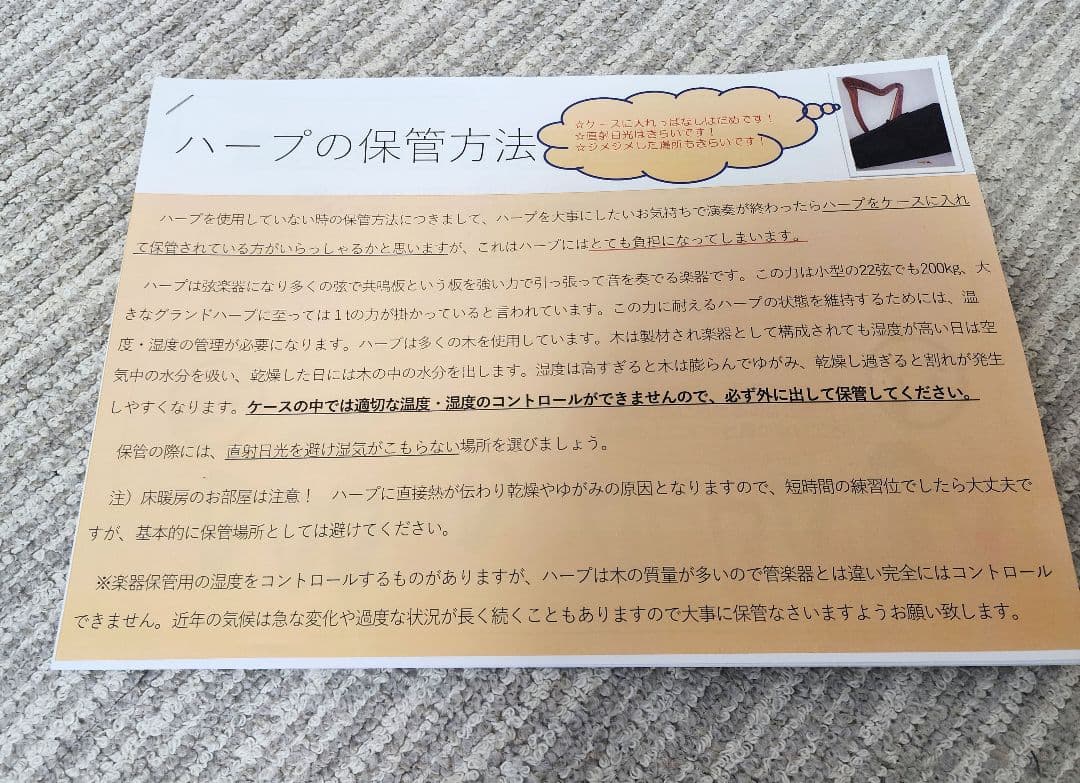 ハープの保管方法
☆ケースに入れっぱなしはだめです！
☆直射日光はきらいです！
☆ジメジメした場所もきらいです！
ハープを使用していない時の保管方法につきまして、ハープを大事にしたいお気持ちで演奏が終わったらハープをケースに入れ
て保管されている方がいらっしゃるかと思いますが、これはハープにはとても負担になってしまいます。
ハープは弦楽器になり多くの弦で共鳴板という板を強い力で引っ張って音を奏でる楽器です。この力は小型の22弦でも200kg、大
きなグランドハープに至っては１tの力が掛かっていると言われています。この力に耐えるハープの状態を維持するためには、温
度・湿度の管理が必要になります。ハープは多くの木を使用しています。木は製材され楽器として構成されても湿度が高い日は空
気中の水分を吸い、乾燥した日には木の中の水分を出します。湿度は高すぎると木は膨らんでゆがみ、乾燥し過ぎると割れが発生
しやすくなります。ケースの中では適切な温度・湿度のコントロールができませんので、必ず外に出して保管してください。
保管の際には、直射日光を避け湿気がこもらない場所を選びましょう。
注）床暖房のお部屋は注意！　ハープに直接熱が伝わり乾燥やゆがみの原因となりますので、短時間の練習位でしたら大丈夫で
すが、基本的に保管場所としては避けてください。
※楽器保管用の湿度をコントロールするものがありますが、ハープは木の質量が多いので管楽器とは違い完全にはコントロール
できません。近年の気候は急な変化や過度な状況が長く続くこともありますので大事に保管なさいますようお願い致します。